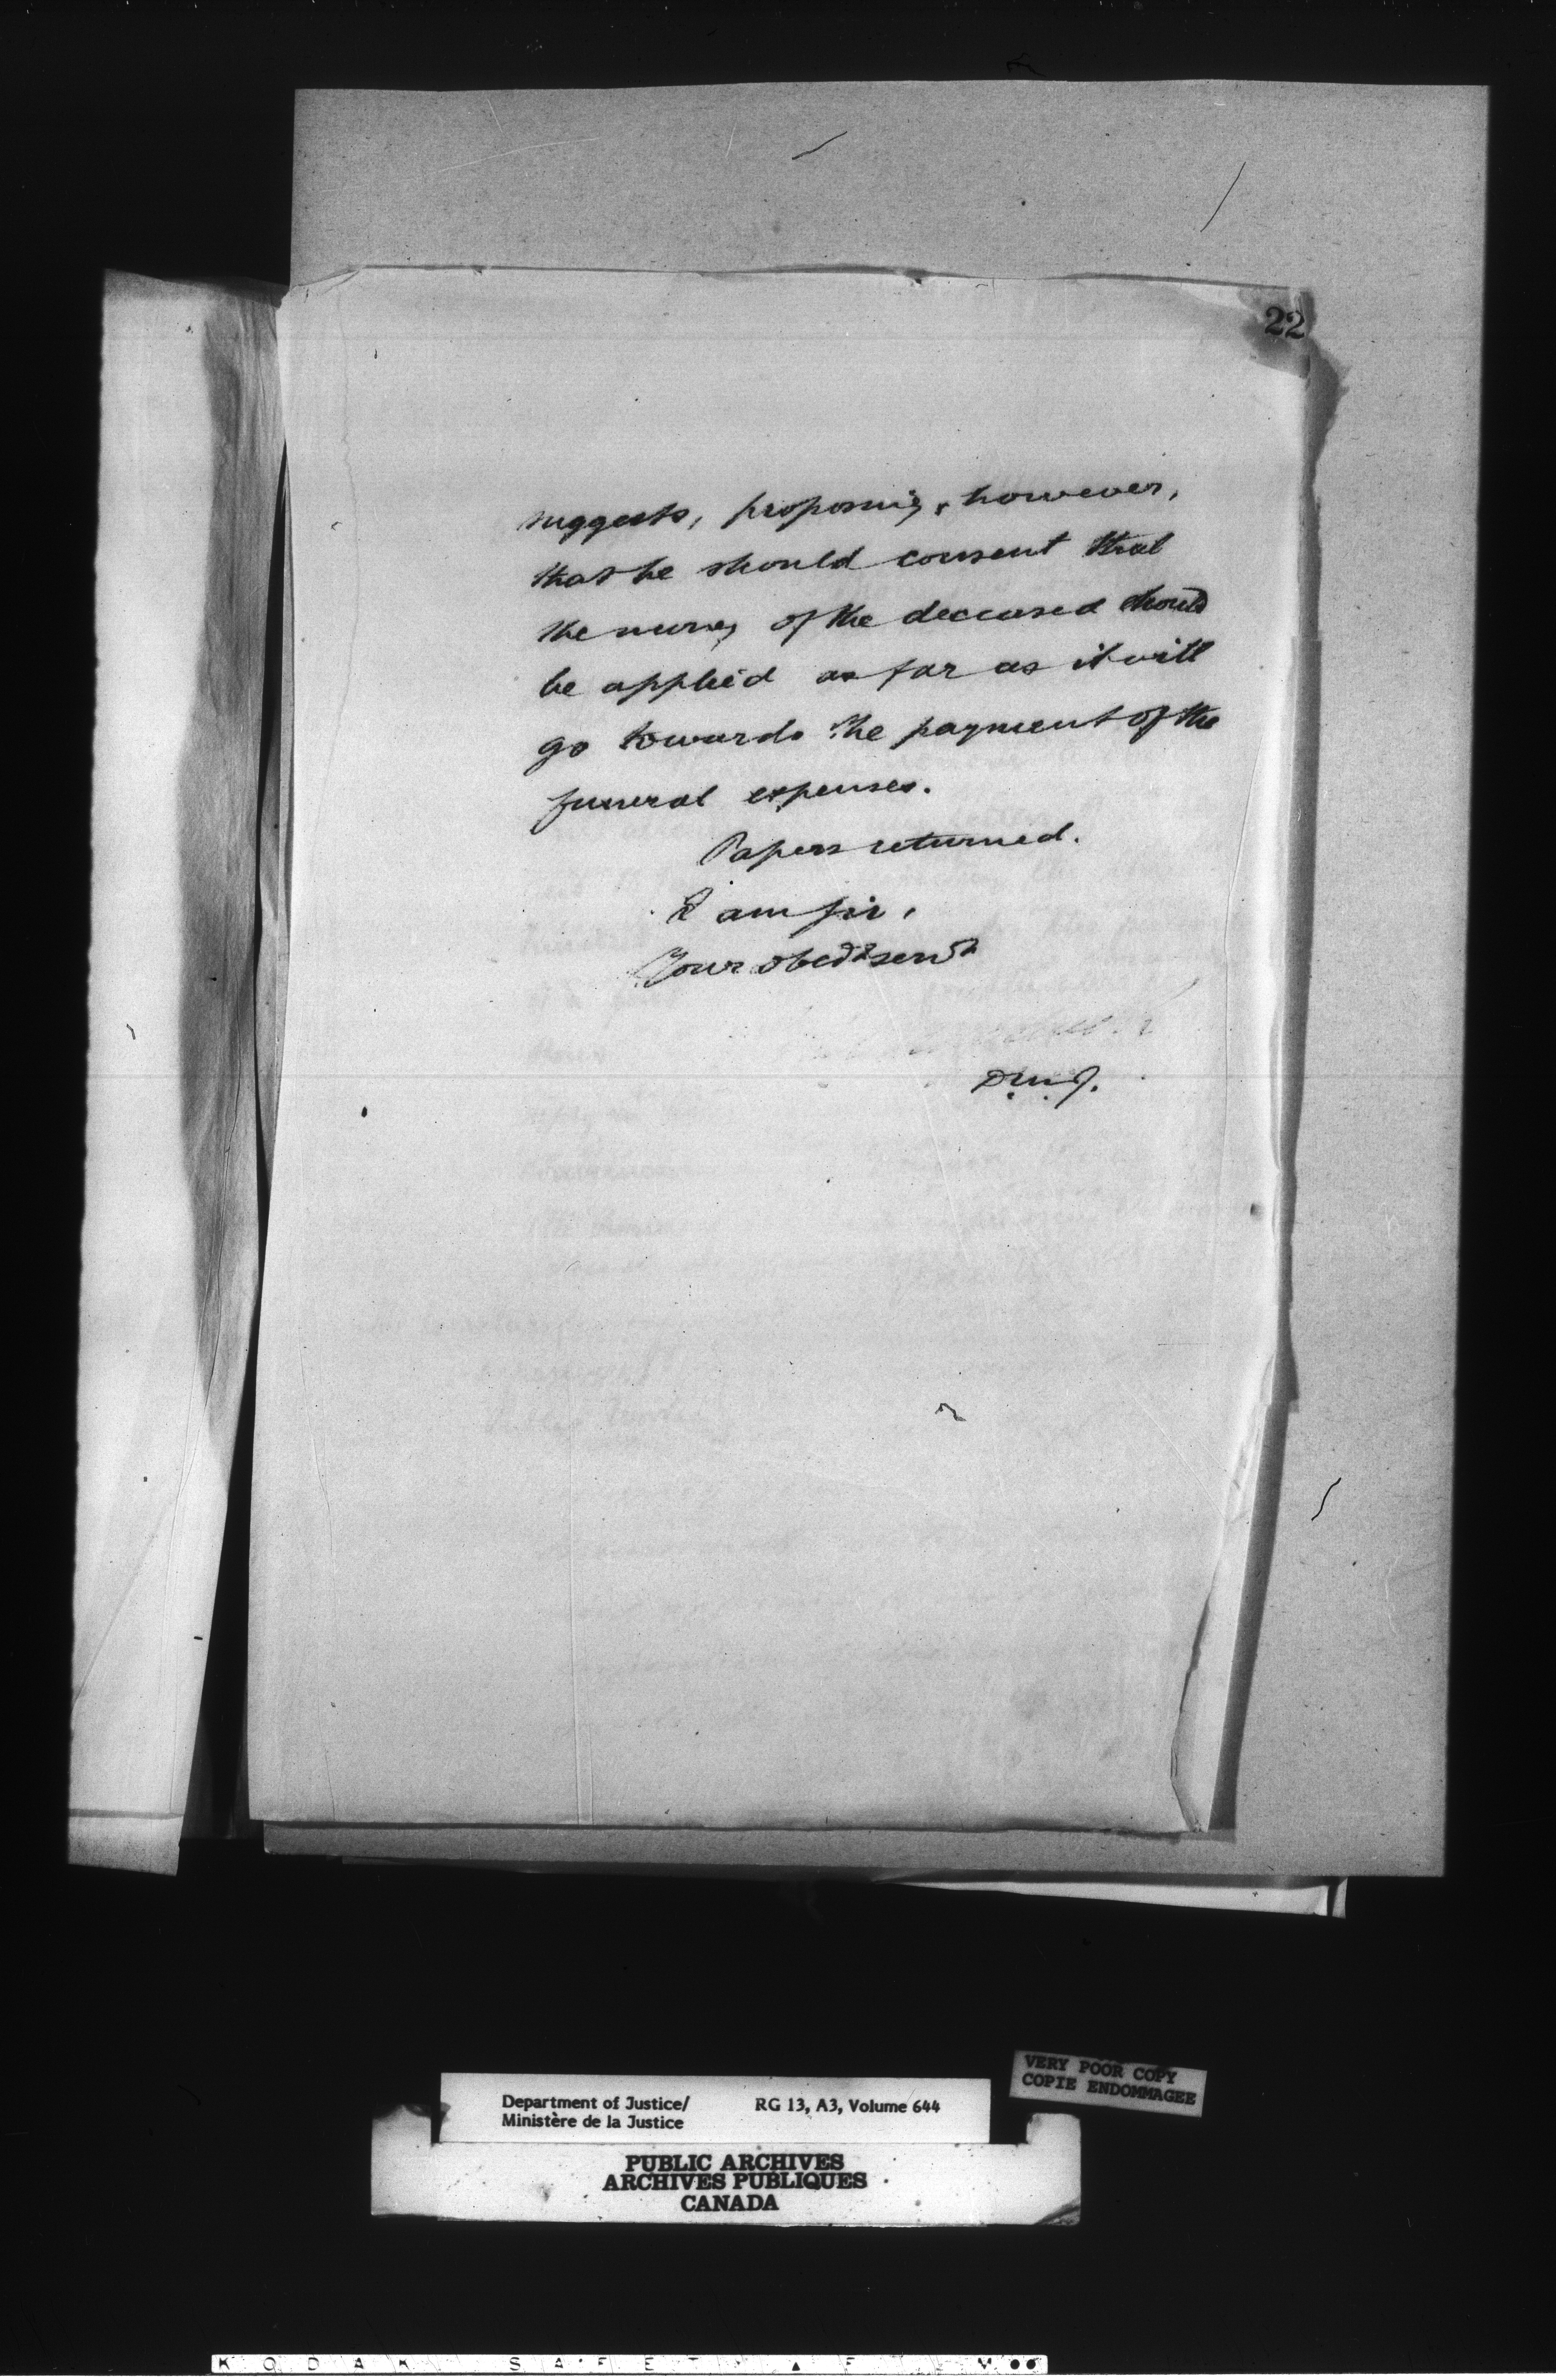 22
suggests, proposing, however,
that he should consent that
the money of the deceased should
be applied as far as it will
go towards the payment of the
funeral expenses.
Papers returned.
I am Sir,
Your obedt servt
D.M.J.
VERY POOR COPY
COPIE ENDOMMAGEE
Department of Justice/ RG 13, A3, Volume 644
Ministère de la Justice
PUBLIC ARCHIVES
ARCHIVES PUBLIQUES
CANADA
KODAK SAFETY